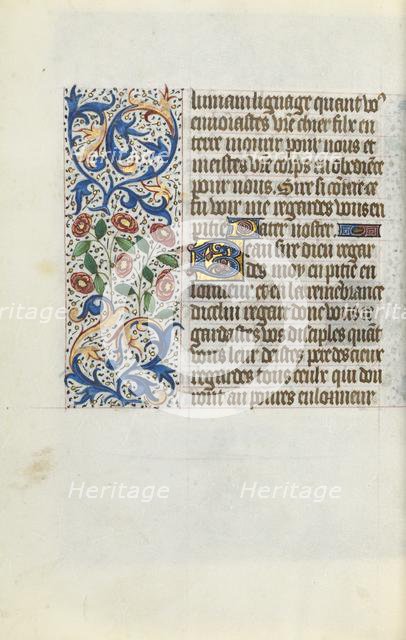 lumain lignage quant vo9
enuoiastes vr̃e chier filz en
terre mourir pour nous et
meistes vr̃e corps en
pour nous. Sire si cõme ce
fu voir me regardes vous en
pitie Pater noster.
Beau sire dieu regar
des moy en pitie en
lonneur et en la remẽbrance
dicelui regart dont vous re
gardastes vos disciples quãt
vous leur deistes pere des cieux
regardes tous ceulx qui don
ront aux poures en lonneur
Heritage
Heritage
Heritage
Heritage
Heritage